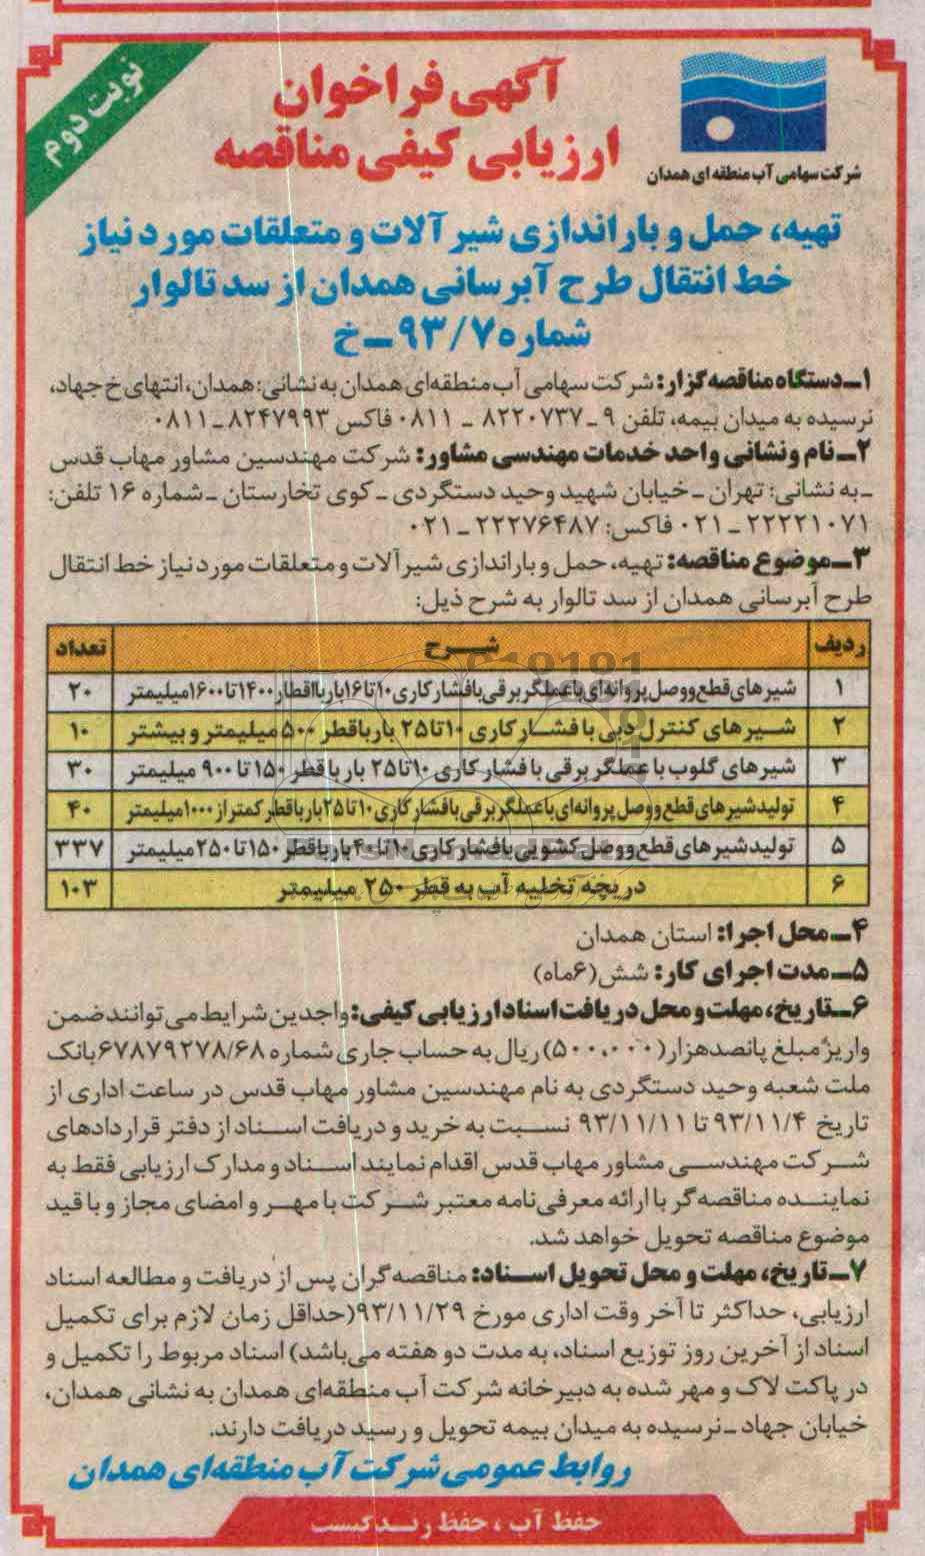 نوبت دوم
آگهی فراخوان
ارزیابی کیفی مناقصه
شرکت سهامی آب منطقه ای همدان
تهیه، حمل و باراندازی شیرآلات و متعلقات مورد نیاز
خط انتقال طرح آبرسانی همدان از سد تالوار
شماره ۹۳/۷-خ
۱ـ دستگاه مناقصه گزار: شرکت سهامی آب منطقه‌ای همدان به نشانی: همدان، انتهای خ جهاد،
نرسیده به میدان بیمه، تلفن ۹ ـ ۸۲۲۰۷۳۷ ـ ۰۸۱۱ فاکس ۸۲۴۷۹۹۳ ـ ۰۸۱۱
۲ـ نام ونشانی واحد خدمات مهندسی مشاور: شرکت مهندسین مشاور مهاب قدس
ـ به نشانی: تهران ـ خیابان شهید وحید دستگردی ـ کوی تخارستان ـ شماره ۱۶ تلفن:
۲۲۲۲۱۰۷۱ ـ ۰۲۱ فاکس: ۲۲۲۷۶۴۸۷ ـ ۰۲۱
۳ـ موضوع مناقصه: تهیه، حمل و باراندازی شیرآلات و متعلقات مورد نیاز خط انتقال
طرح آبرسانی همدان از سد تالوار به شرح ذیل:
ردیف شـــرح تعداد
۱ شیرهای قطع و وصل پروانه‌ای با عملگر برقی با فشار کاری ۱۰ تا ۱۶ بار با اقطار ۱۴۰۰ تا ۱۶۰۰ میلیمتر ۲۰
۲ شیرهای کنترل دبی با فشار کاری ۱۰ تا ۲۵ بار با قطر ۵۰۰ میلیمتر و بیشتر ۱۰
۳ شیرهای گلوب با عملگر برقی با فشار کاری ۱۰ تا ۲۵ بار با قطر ۱۵۰ تا ۹۰۰ میلیمتر ۳۰
۴ تولید شیرهای قطع و وصل پروانه‌ای با عملگر برقی با فشار کاری ۱۰ تا ۲۵ بار با قطر کمتر از ۱۰۰۰ میلیمتر ۴۰
۵ تولید شیرهای قطع و وصل کشویی با فشار کاری ۱۰ تا ۴۰ بار با قطر ۱۵۰ تا ۲۵۰ میلیمتر ۳۳۷
۶ دریچه تخلیه آب به قطر ۲۵۰ میلیمتر ۱۰۳
۴ـ محل اجرا: استان همدان
۵ـ مدت اجرای کار: شش (۶ماه)
۶ـ تاریخ، مهلت و محل دریافت اسناد ارزیابی کیفی: واجدین شرایط می توانند ضمن
واریز مبلغ پانصد هزار (۵۰۰،۰۰۰) ریال به حساب جاری شماره ۶۷۸۷۹۲۷۸/۶۸ بانک
ملت شعبه وحید دستگردی به نام مهندسین مشاور مهاب قدس در ساعت اداری از
تاریخ ۹۳/۱۱/۴ تا ۹۳/۱۱/۱۱ نسبت به خرید و دریافت اسناد از دفتر قراردادهای
شرکت مهندسی مشاور مهاب قدس اقدام نمایند اسناد و مدارک ارزیابی فقط به
نماینده مناقصه‌گر با ارائه معرفی‌نامه معتبر شرکت با مهر و امضای مجاز و با قید
موضوع مناقصه تحویل خواهد شد.
۷ـ تاریخ، مهلت و محل تحویل اسناد: مناقصه گران پس از دریافت و مطالعه اسناد
ارزیابی، حداکثر تا آخر وقت اداری مورخ ۹۳/۱۱/۲۹ (حداقل زمان لازم برای تکمیل
اسناد از آخرین روز توزیع اسناد، به مدت دو هفته می‌باشد) اسناد مربوط را تکمیل و
در پاکت لاک و مهر شده به دبیرخانه شرکت آب منطقه‌ای همدان به نشانی همدان،
خیابان جهاد ـ نرسیده به میدان بیمه تحویل و رسید دریافت دارند.
روابط عمومی شرکت آب منطقه‌ای همدان
حفظ آب ، حفظ زندگیست